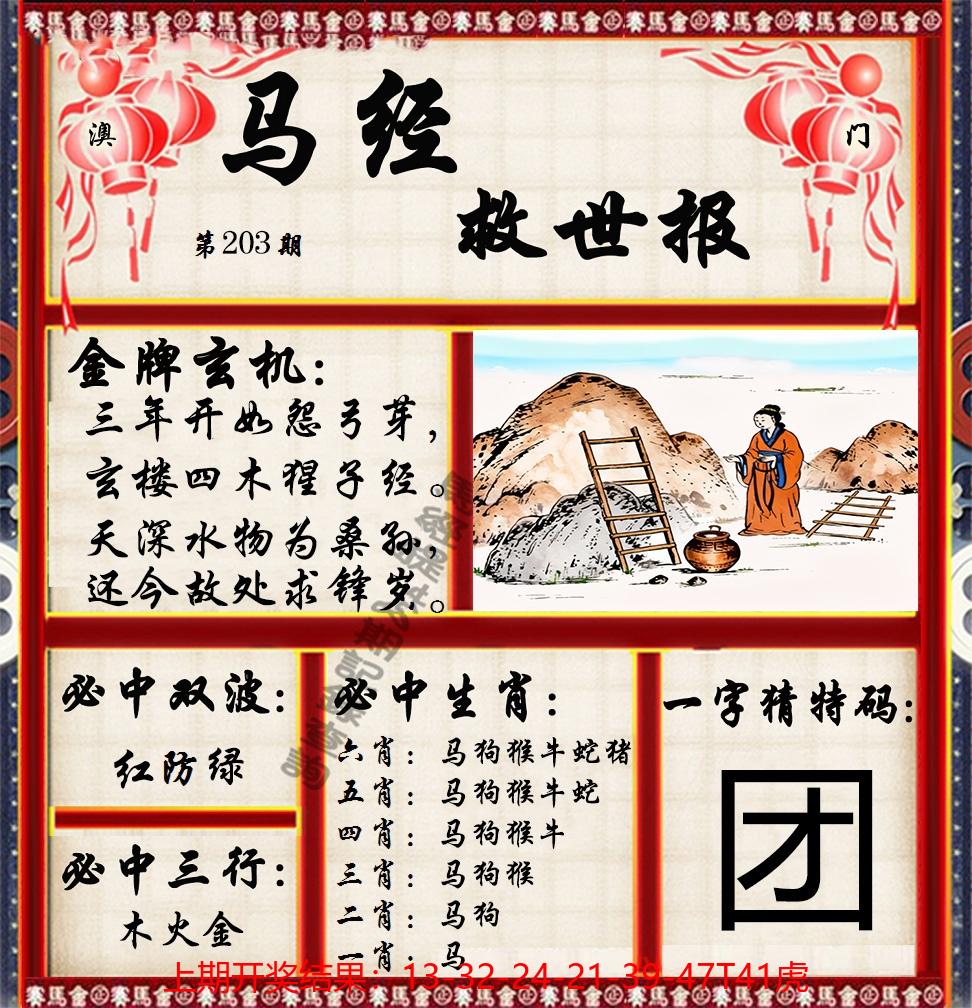 澳
门
马经
救世报
第203期
金牌玄机：
三年开如怨弓芽，
玄楼四木猩子经。
天深水物为桑孙，
还今故处求锋岁。
必中双波：
红防绿
必中三行：
木火金
必中生肖：
六肖：马狗猴牛蛇猪
五肖：马狗猴牛蛇
四肖：马狗猴牛
三肖：马狗猴
二肖：马狗
一肖：马
一字猜特码：
团
上期开奖结果：13-32-24-21-39-47T41虎